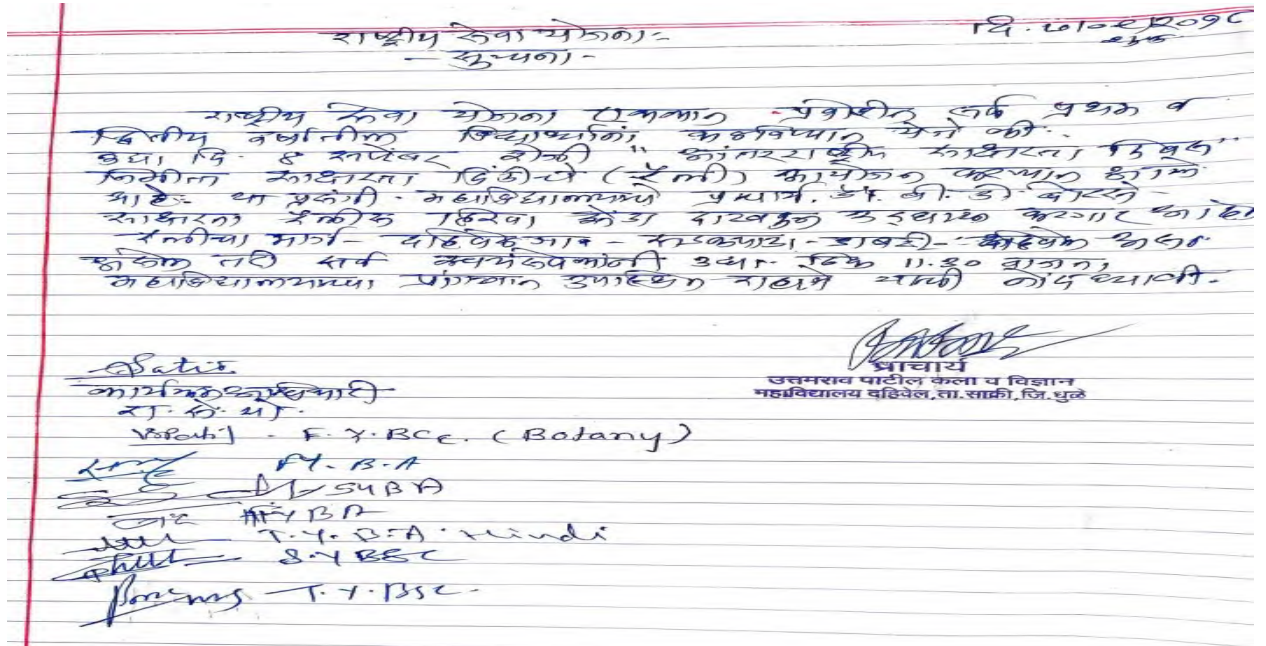 राष्ट्रीय सेवा योजना:-
दि. ७/०९/२०१८
- सुचना -
राष्ट्रीय सेवा योजना एककात प्रवेशीत सर्व प्रथम व
द्वितीय वर्षातील विद्यार्थ्यांना कळविण्यात येते की.
उद्या दि. ८ सप्टेंबर रोजी "आंतरराष्ट्रीय साक्षरता दिवस"
निमीत्त साक्षरता दिंडीचे (रॅली) आयोजन करण्यात आले
आहे. या प्रसंगी महाविद्यालयाचे प्राचार्य. डॉ. बी. डी. बोरसे -
साक्षरता रॅलीस हिरवा झेंडा दाखवून उद्घाटन करणार आहेत
रॅलीचा मार्ग - दहिवेल गाव - - दहिवेल असा
असेल तरी सर्व स्वयंसेवकांनी उद्या ठिक 11.30 वाजता
महाविद्यालयाच्या प्रांगणात उपस्थित राहावे याची नोंद घ्यावी.
प्राचार्य
उत्तमराव पाटील कला व विज्ञान
महाविद्यालय दहिवेल, ता. साक्री, जि. धुळे
कार्यक्रम अधिकारी
रा. से. यो.
F.Y.BCc. (Botany)
FY. B.A
SYBA
FYBA
T.Y.B.A. Hindi
S.Y BSC
T.Y.BSC.